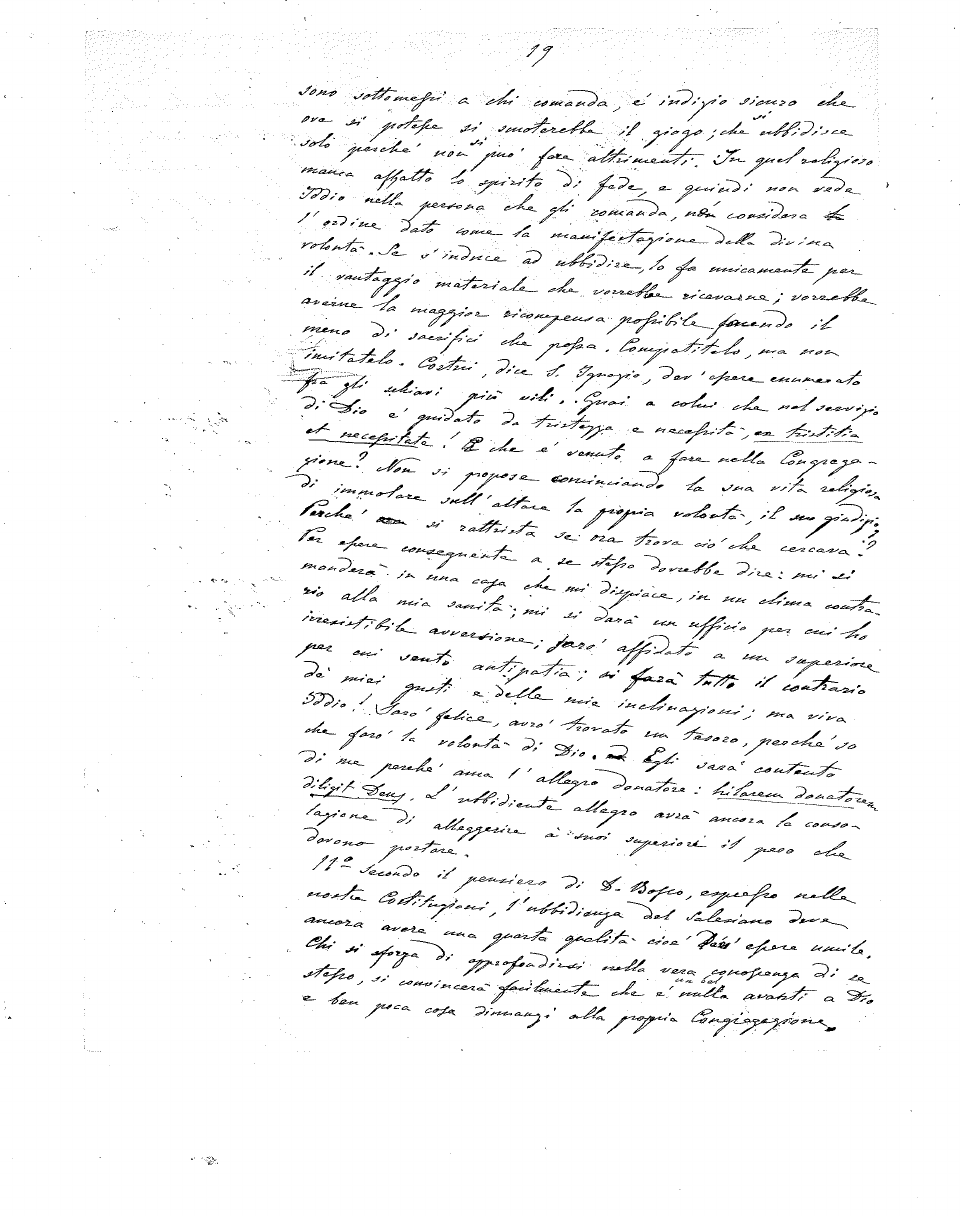 19
sono sottomessi a chi comanda, é indizio sicuro che
ove si potesse si smoterebbe il giogo; che si ubbidisce
solo perché non si può fare altrimenti. In quel religioso
manca affatto lo spirito di fede, e quindi non vede
Iddio nella persona che gli comanda, non considera
l'ordine dato come la manifestazione della divina
volontà. Se s'induce ad ubbidire, lo fa unicamente per
il vantaggio materiale che vorrebbe ricavarne; vorrebbe
averne la maggior ricompensa possibile facendo il
meno di sacrifici che possa. Compatitelo, ma non
imitatelo. Costui, dice S. Ignazio, dev'essere enumerato
fra gli schiavi più vili. Guai a colui che nel servizio
di Dio é guidato da tristezza e necessità, ex tristitia
et necessitate! E che é venuto a fare nella Congrega-
zione? Non si propose cominciando la sua vita religiosa
di immolare sull'altare la propria volontà, il suo giudizio?
Perché si rattrista se ora trova ció che cercava?
Per essere conseguente a se stesso dovrebbe dire: mi si
manderà in una casa che mi dispiace, in un clima contra-
rio alla mia sanità; mi si darà un ufficio per cui ho
irresistibile avversione; saró affidato a un superiore
per cui sento antipatia; si farà tutto il contrario
de' miei gusti e delle mie inclinazioni; ma viva
Iddio! Saró felice, avró trovato un tesoro, perché so
che faró la volontà di Dio. Egli sarà contento
di me perché ama l'allegro donatore: hilarem donatorem
diligit Deus. L'ubbidiente allegro avrà ancora la conso-
lazione di alleggerire a' suoi superiori il peso che
devono portare.
11º Secondo il pensiero di D. Bosco, espresso nelle
nostre Costituzioni, l'ubbidienza del Salesiano deve
ancora avere una quarta qualità cioé essere umile.
Chi si sforza di approfondirsi nella vera conoscenza di se
stesso, si convincerà facilmente che é un bel nulla avanti a Dio
e ben poca cosa dinnanzi alla propria Congregazione.